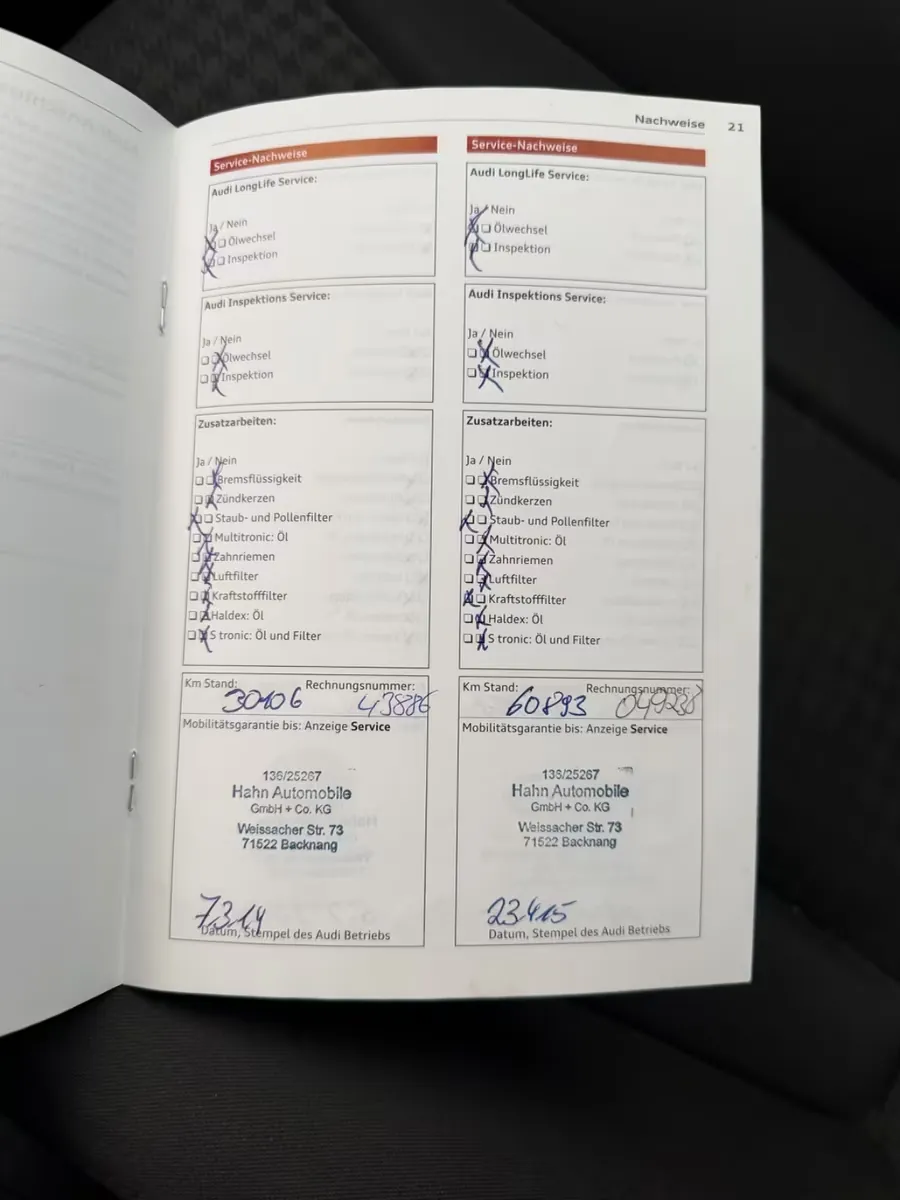 Nachweise 21
Service-Nachweise
Audi LongLife Service:
Ja / Nein
Ölwechsel
Inspektion
Audi Inspektions Service:
Ja / Nein
Ölwechsel
Inspektion
Zusatzarbeiten:
Ja / Nein
Bremsflüssigkeit
Zündkerzen
Staub- und Pollenfilter
Multitronic: Öl
Zahnriemen
Luftfilter
Kraftstofffilter
Haldex: Öl
S tronic: Öl und Filter
Km Stand: Rechnungsnummer:
30106 43886
Mobilitätsgarantie bis: Anzeige Service
136/25267
Hahn Automobile
GmbH + Co. KG
Weissacher Str. 73
71522 Backnang
7.3.14
Datum, Stempel des Audi Betriebs
Service-Nachweise
Audi LongLife Service:
Ja / Nein
Ölwechsel
Inspektion
Audi Inspektions Service:
Ja / Nein
Ölwechsel
Inspektion
Zusatzarbeiten:
Ja / Nein
Bremsflüssigkeit
Zündkerzen
Staub- und Pollenfilter
Multitronic: Öl
Zahnriemen
Luftfilter
Kraftstofffilter
Haldex: Öl
S tronic: Öl und Filter
Km Stand: Rechnungsnummer:
60893 049238
Mobilitätsgarantie bis: Anzeige Service
136/25267
Hahn Automobile
GmbH + Co. KG
Weissacher Str. 73
71522 Backnang
23.4.15
Datum, Stempel des Audi Betriebs